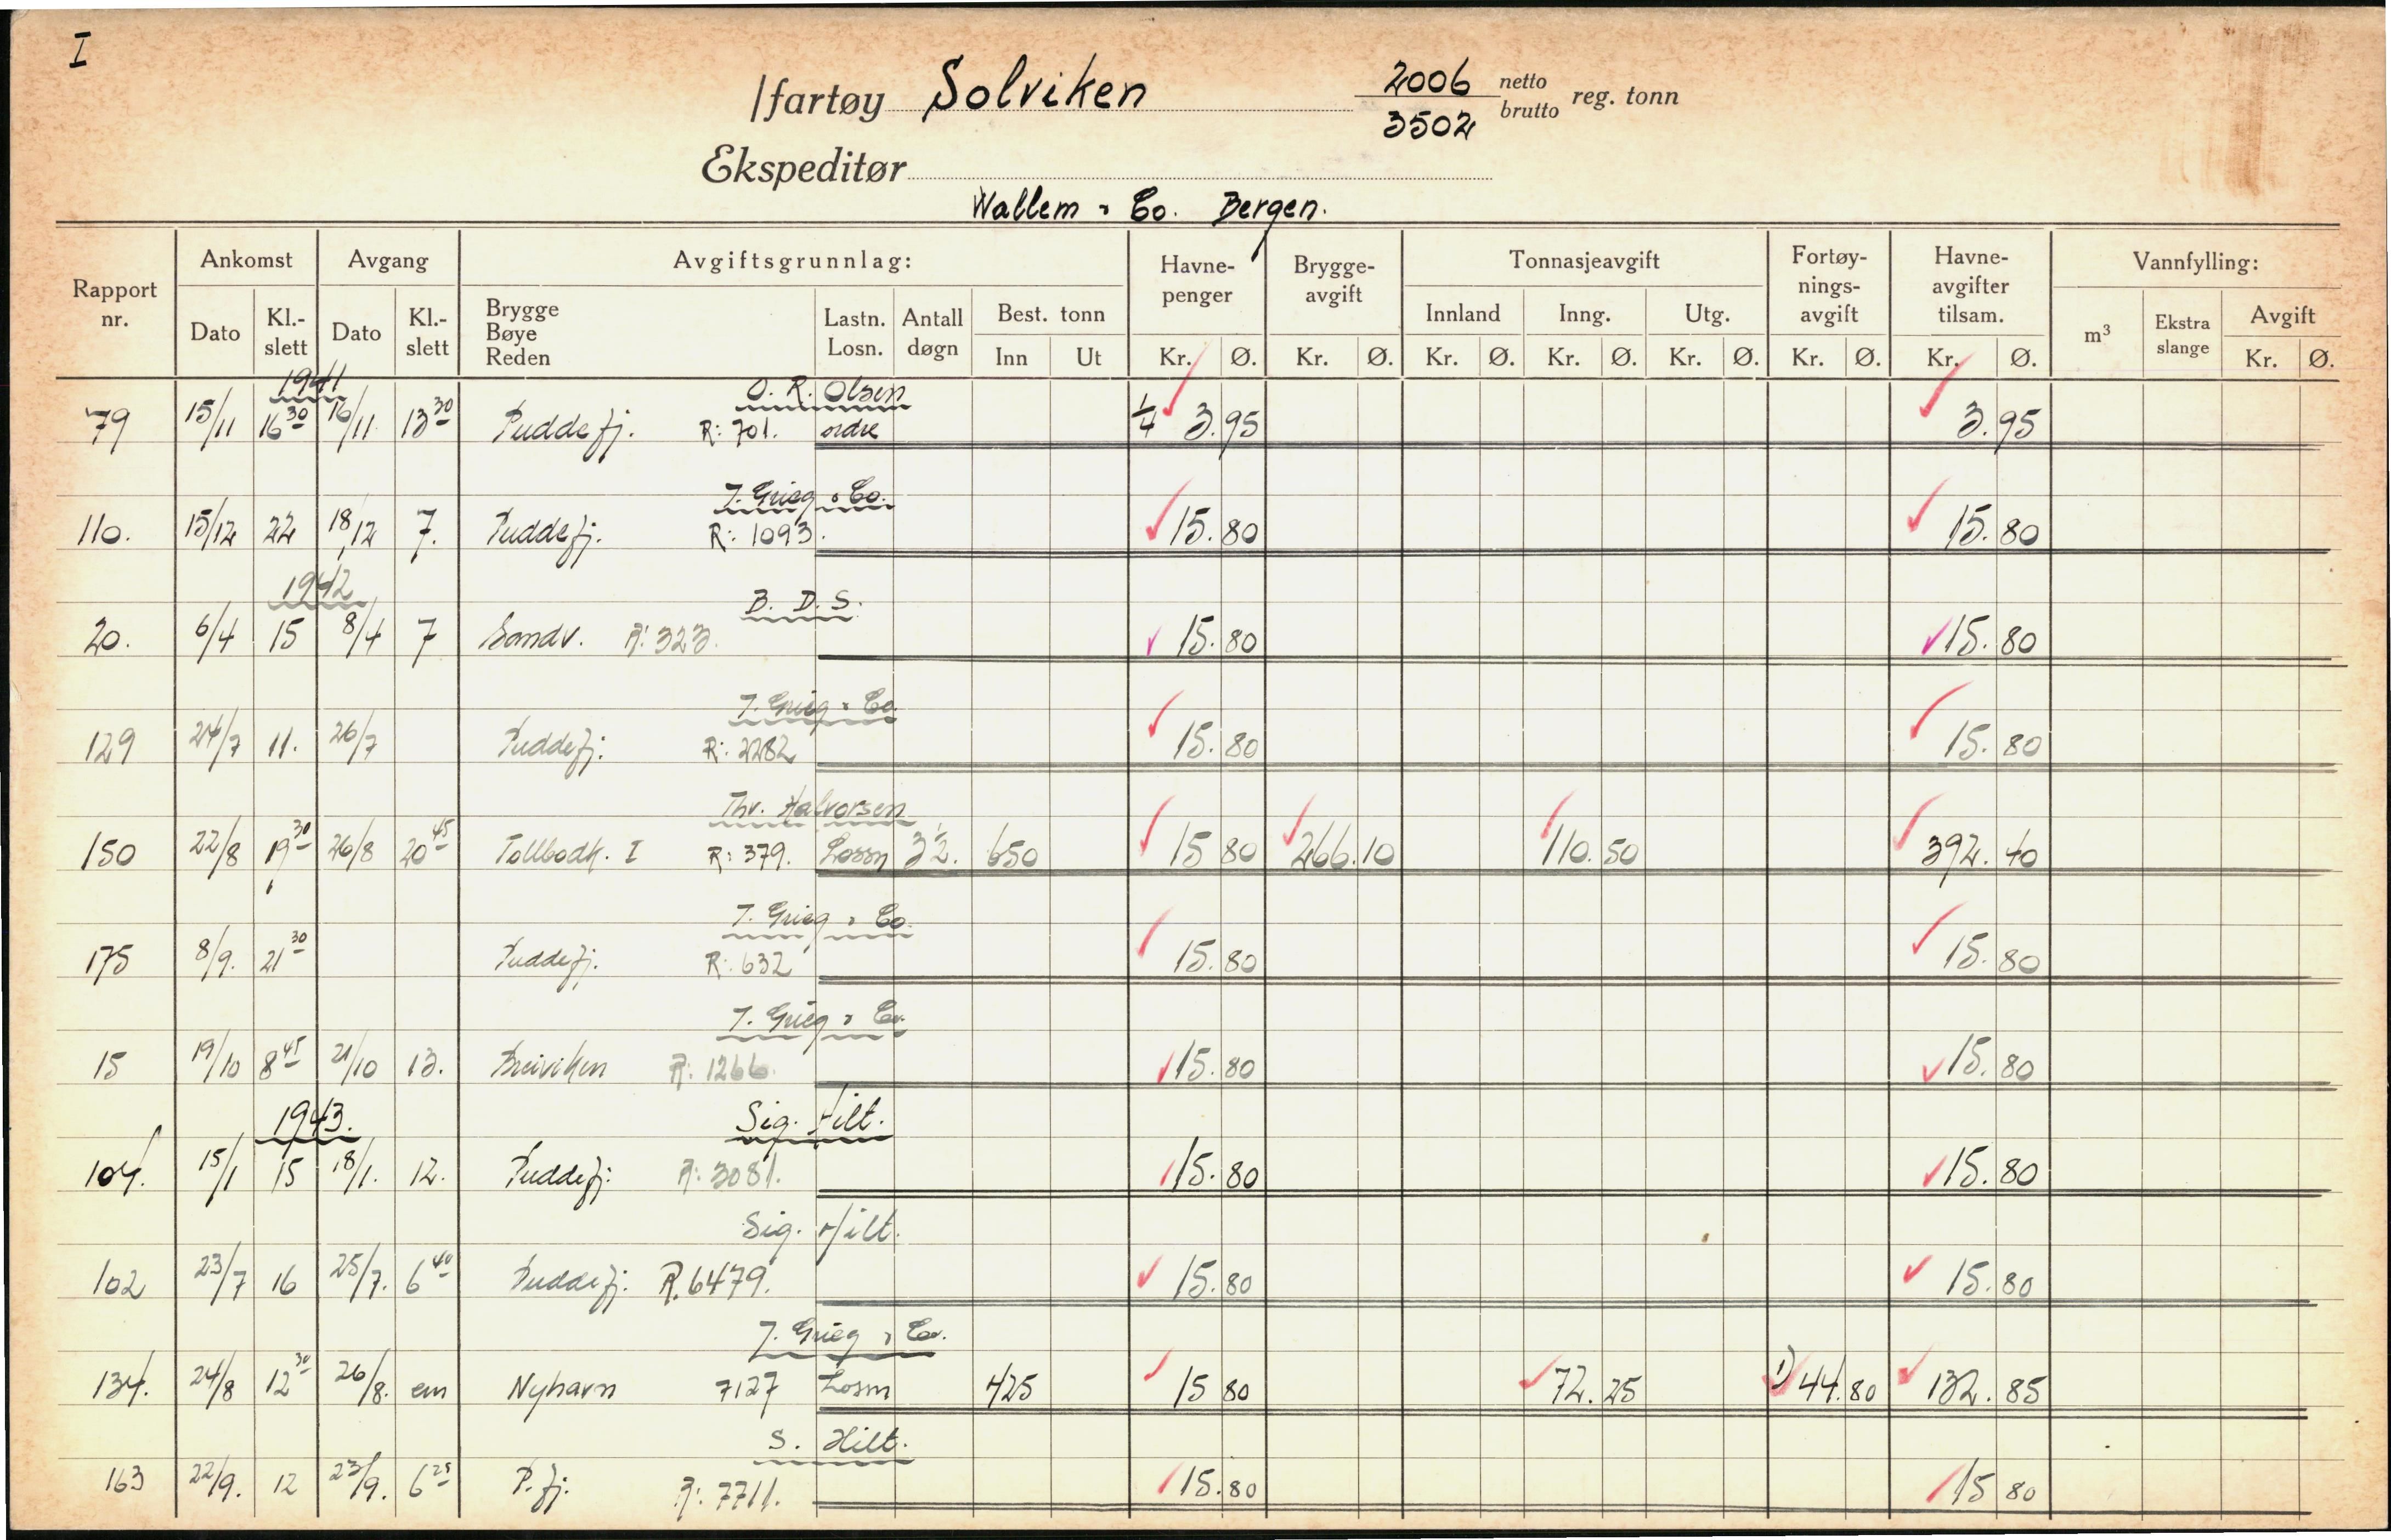 I
/fartøy Solviken 2006 netto
3502 brutto reg. tonn
Ekspeditør
Wallem & Co. Bergen.
Rapport nr. Ankomst Avgang Avgiftsgrunnlag: Havne-penger Brygge-avgift Tonnasjeavgift Fortøy-nings-avgift Havne-avgifter tilsam. Vannfylling:
Dato Kl.-slett Dato Kl.-slett Brygge Bøye Reden Lastn. Losn. Antall døgn Best. tonn Innland Inng. Utg. m³ Ekstra slange Avgift
Inn Ut Kr. Ø. Kr. Ø. Kr. Ø. Kr. Ø. Kr. Ø. Kr. Ø. Kr. Ø. Kr. Ø.
1941 O. R. Olsen
79 15/11 16 30 16/11 13 30 Puddefj. R: 701. ordre 1/4 3.95 3.95
J. Grieg & Co.
110. 15/12 22 18/12 7. Puddefj. R: 1093. 15.80 15.80
1942 B. D. S.
20. 6/4 15 8/4 7 Sandv. R: 323. 15.80 15.80
J. Grieg & Co.
129 24/7 11. 26/7 Puddefj. R: 2282 15.80 15.80
Thv. Halvorsen
150 22/8 19 30 26/8 20 45 Tollbodk. I R: 379. Lossn 650 15 80 266.10 110.50 392.40
J. Grieg & Co.
175 8/9. 21 30 Puddefj. R: 632 15.80 15.80
J. Grieg & Co.
15 19/10 8 45 21/10 13. Breiviken R: 1266. 15.80 15.80
1943. Sig. Hilt.
104. 15/1 15 18/1. 12. Puddefj: R: 3081. 15.80 15.80
Sig. Hilt.
102 23/7 16 25/7. 6 40 Puddefj: R. 6479. 15.80 15.80
J. Grieg & Co.
134. 24/8 12 30 26/8. em Nyhavn 7127 Lossn 425 15 80 72.25 1) 44.80 132.85
S. Hilt.
163 22/9. 12 23/9. 6 25 P.fj. R: 7711. 15.80 15 80